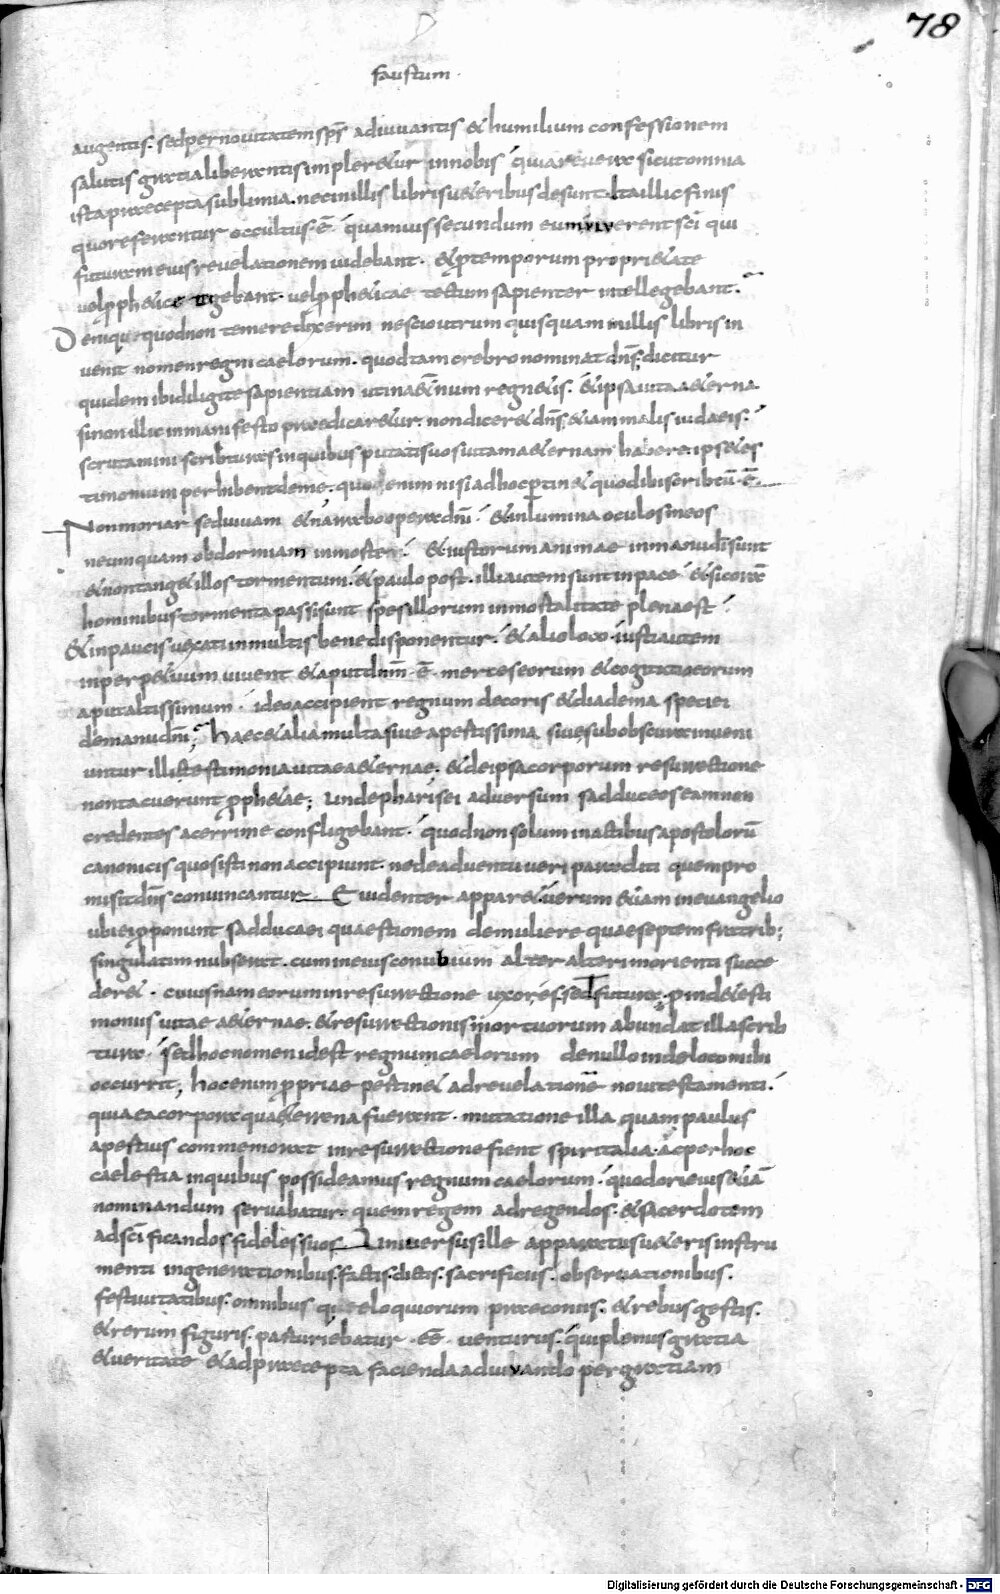 78
faustum
augentis. sed per nouitatem sp̄s adiuuantis & humilium confessionem
salutis gratia liberantis impler&ur in nobis quia reuera sicut omnia
ista praecepta sublimia. nec in illis libris u&eribus desunt. Ita illic finis
quo referantur occultus ē quamuis secundum eum uiuerent sc̄i qui
futuram eius reuelationem uidebant. & p temporum propri&ate
uel ph&ice tegebant. uel ph&icae tectum sapienter intellegebant.
Denique quod non temere dixerim nescio utrum quisquam in illis libris in
uenit nomen regni caelorum. quod tam crebro nominat dn̄s. dicitur
quidem ibi diligite sapientiam ut in a&ernum regn&is. & ipsa uita a&erna
si non illic in manifesto praedicar&ur. non dicer& dn̄s &iam malis iudaeis.
scrutamini scribturas in quibus putatis uos uitam a&ernam habere. ipsae tes
timonium perhibent de me. quo enim nisi ad hoc ptin& quod ibi scribtū ē.
Non moriar sed uiuam & narrabo opera dn̄i. & inlumina oculos meos
ne umquam obdormiam in morte. & iustorum animae in manu dī sunt
& non tang& illos tormentum. & paulo post. illi autem sunt in pace & si coram
hominibus tormenta passi sunt spes illorum inmortalitate plena est
& in paucis uexati in multis bene disponentur. & alio loco. iusti autem
in perp&uum uiuent & aput dnm̄ ē merces eorum & cogitatio eorum
aput altissimum. ideo accipient regnum decoris & diadema speciei
de manu dn̄i; Haec & alia multa siue apertissima siue subobscura inueni
untur illic testimonia uitae a&ernae. & de ipsa corporum resurrectione
non tacuerunt proph&ae; unde pharisei aduersum sadduceos eam non
credentes acerrime confligebant. quod non solum in actibus apostolorū
canonicis quos isti non accipiunt. ne de aduentu ueri paracliti quem pro
misit dn̄s conuincantur Euidenter appar& uerum &iam in euangelio
ubi ei pponunt sadducaei quaestionem de muliere quae septem fratrib;
singulatim nubserat. cum in eius conubium alter alteri morienti succe
der&. cuiusnam eorum in resurrectione uxor ess& futura. pinde testi
moniis uitae a&ernae. & resurrectionis mortuorum abundat illa scrib
tura. sed hoc nomen id est regnum caelorum de nullo inde loco mihi
occurrit; hoc enim propriae ptin& ad reuelationē noui testamenti.
quia ea corpora quae terrena fuerant. mutatione illa quam paulus
aptius commemorat in resurrectione fient spiritalia. ac per hoc
caelestia in quibus possideamus regnum caelorum. quod ori eius &iā
nominandum seruabatur. quem regem ad regendos. & sacerdotem
ad sc̄ificandos fideles suos Uniuersus ille apparatus u&eris instru
menti in generationibus. factis. dictis. sacrificiis. obseruationibus.
festiuitatibus. omnibus que eloquiorum praeconiis. & rebus gestis.
& rerum figuris. parturiebatur. eē uenturus. qui plenus gratia
& ueritate & ad praecepta facienda adiuuando per gratiam
Digitalisierung gefördert durch die Deutsche Forschungsgemeinschaft - DFG